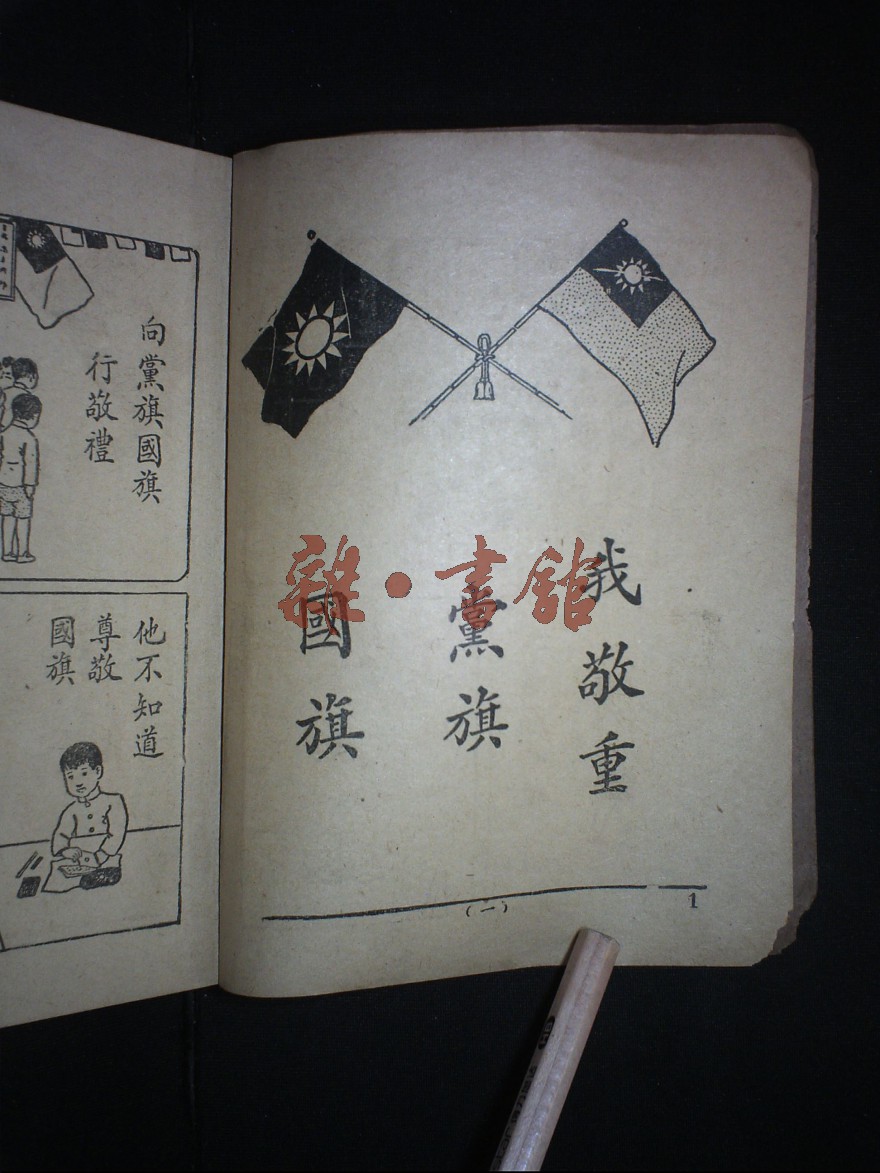 我敬重
黨旗
國旗
(一)
1
向黨旗國旗
行敬禮
他不知道
尊敬
國旗
雜·書館